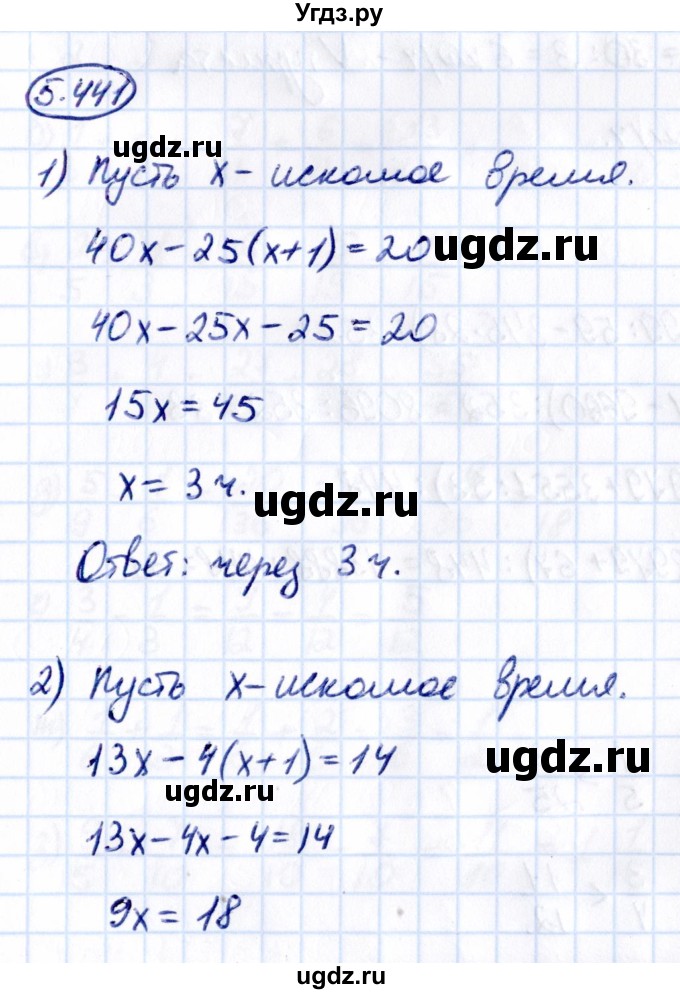 Угдз.ру
5.441
ugdz.ru
1) Пусть х - искомое время.
40х - 25(х+1) = 20
ugdz.ru
40х - 25х - 25 = 20
15х = 45
х = 3 ч.
ugdz.ru
Ответ: через 3 ч.
2) Пусть х - искомое время.
13х - 4(х+1) = 14
ugdz.ru
ugdz.ru
13х - 4х - 4 = 14
9х = 18
ugdz.ru